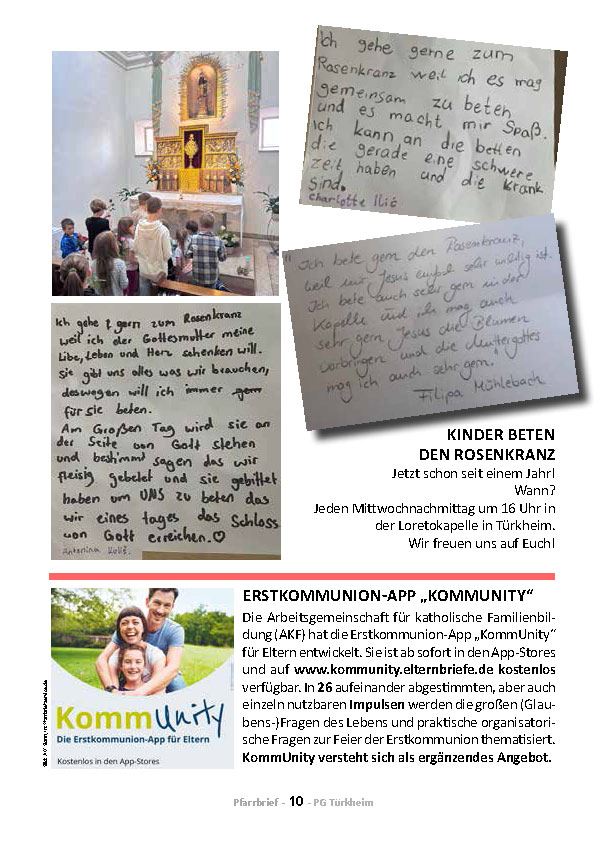 Ich gehe gerne zum
Rosenkranz weil ich es mag
gemeinsam zu beten
und es macht mir Spaß.
Ich kann an die betten
die gerade eine schwere
zeit haben und die Krank
sind.
Charlotte Ilić
"Ich bete gern den Rosenkranz,
weil mir Jesus sehr wichtig ist.
Ich bete auch sehr gern in der
Kapelle und ich mag auch
sehr gern Jesus die Blumen
vorbringen und die Muttergottes
mag ich auch sehr gern."
Filipa Mühlebach
Ich gehe gern zum Rosenkranz
weil ich der Gottesmutter meine
Libe, Leben und Herz schenken will.
Sie gibt uns alles was wir brauchen,
deswegen will ich immer gern
für sie beten.
Am Großen Tag wird sie an
der Seite von Gott stehen
und bestimmt sagen das wir
fleisig gebetet und sie gebittet
haben um UNS zu beten das
wir eines tages das Schloss
von Gott erreichen.♡
Antonina
KINDER BETEN
DEN ROSENKRANZ
Jetzt schon seit einem Jahr!
Wann?
Jeden Mittwochnachmittag um 16 Uhr in
der Loretokapelle in Türkheim.
Wir freuen uns auf Euch!
ERSTKOMMUNION-APP „KOMMUNITY“
Die Arbeitsgemeinschaft für katholische Familienbil-
dung (AKF) hat die Erstkommunion-App „KommUnity“
für Eltern entwickelt. Sie ist ab sofort in den App-Stores
und auf www.kommunity.elternbriefe.de kostenlos
verfügbar. In 26 aufeinander abgestimmten, aber auch
einzeln nutzbaren Impulsen werden die großen (Glau-
bens-)Fragen des Lebens und praktische organisatori-
sche Fragen zur Feier der Erstkommunion thematisiert.
KommUnity versteht sich als ergänzendes Angebot.
KommUnity
Die Erstkommunion-App für Eltern
Kostenlos in den App-Stores
Pfarrbrief - 10 - PG Türkheim